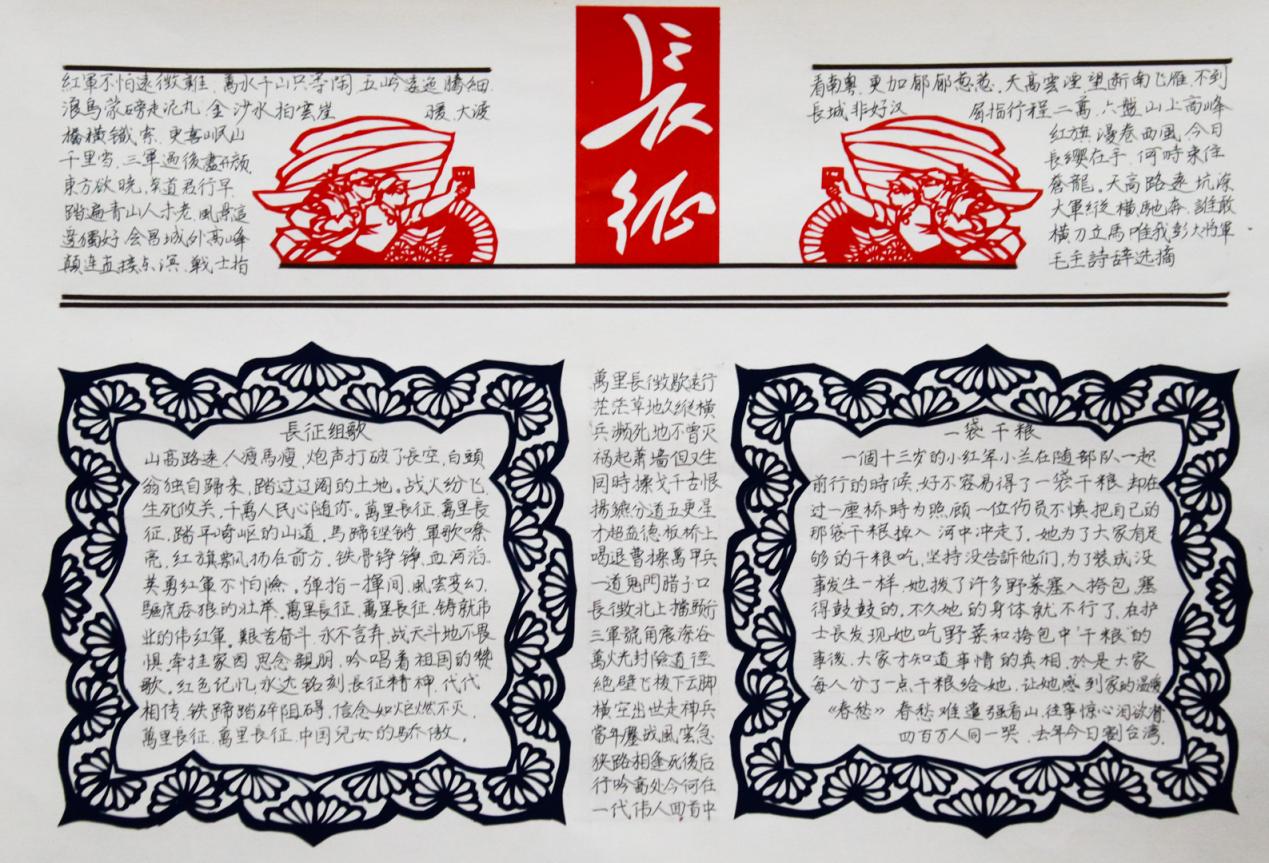 長征
紅軍不怕遠徵難.萬水千山只等閑.五岭逶迤騰細
浪烏蒙磅走泥丸.金沙水拍雲崖
暖.大渡
橋橫鐵索.更喜岷山
千里雪.三軍過後盡開顔.
東方欲曉.莫道君行早
踏遍青山人未老.風景這
邊獨好.会昌城外高峰
顛连直接东溟.戰士指
看南粤.更加郁郁葱葱.天高雲淫.望断南飞雁.不到
長城非好汉
屈指行程二萬.六盤山上高峰
红旗漫卷西風.今日
長纓在手.何時束住
蒼龍。天高路遠坑深
大軍纵横馳奔.誰敢
横刀立馬唯我彭大将軍.
毛主詩辞选摘
長征组歌
山高路遠.人瘦馬瘦.炮声打破了長空.白頭
翁独自歸来.踏过辽阔的土地。战火纷飞.
生死攸关.千萬人民心随你。萬里長征.萬里長
征.踏平崎岖的山道.馬蹄铿锵.軍歌嘹
亮.红旗飘扬在前方.铁骨铮铮.血河滔.
英勇红軍不怕險。弹指一揮間.風雲变幻.
驅虎吞狼的壮举.萬里長征.萬里長征.铸就伟
出的伟红軍。艱苦奋斗.永不言弃.战天斗地不畏
惧.牵挂家园.思念親朋.吟唱着祖国的赞
歌。红色记忆.永远铭刻.長征精神.代代
相传.铁蹄踏碎阻碍.信念如炬燃不灭.
萬里長征.萬里長征.中国兒女的骄傲。
萬里長徵歌远行
茫茫草地久縱横
兵濒死地不曾灭
祸起萧墙但又生
同時操戈千古恨
揚鑣分道五更星
才超益德板桥上
喝退曹操萬甲兵
一道鬼門腊子口
長徵北上擋頭行
三軍號角震海谷
萬火光封險道徑
絶壁飞梭下云脚
横空出世走神兵
當年鏖战風雲急
狭路相逢死後后
行吟高处今何在
一代伟人四首中
一袋干粮
一個十三岁的小红军小兰在随部队一起
前行的時候.好不容易得了一袋干粮.却在
过一座桥時为照顾一位伤员不慎把自己的
那袋干粮掉入河中冲走了。她为了大家有足
够的干粮吃.坚持没告訴他们.为了裝成没
事发生一样.她拨了许多野菜塞入挎包.塞
得鼓鼓的.不久她的身体就不行了.在护
士長发现她吃野菜和挎包中"干粮"的
事後.大家才知道事情的真相.於是大家
每人分了一点干粮给她.让她感到家的温暖
《春愁》 春愁难遣强看山.往事惊心泪欲潸.
四百万人同一哭.去年今日割台湾.